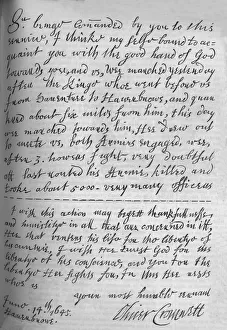 Sr beinge comanded by you to this
service, I thinke my selfe bound to ac-
quaint you with the good hand of God
towards you, and vs, Wee marched yesterday
after the Kinge whoe went before vs
from Dauentree to Haverbrowe, and quar
tered about six miles from him, this day
wee marched towards him, Hee drew out
to meete vs, both Armies engaged, wee,
after 3. howers fight, very doubtful
att last routed his Armie, killed and
tooke about 5000. very many officers
I wish this action may begett thankfullnesse,
and humilitye in all that are concerned in itt,
Hee that venters his life for the libertye of
his countrie, I wish hee trust God for the
libertye of his conscience, and you for the
libertye Hee fights for, In this Hee rests
whoe is
your most humble servant
Oliver Cromwell
June 14th, 1645.
Haverbrowe.